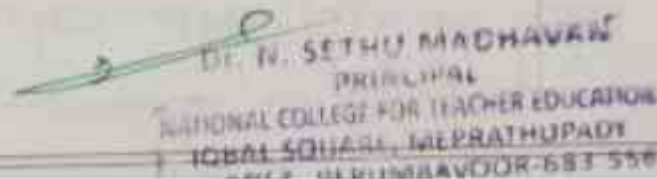 Dr. N. SETHU MADHAVAN
PRINCIPAL
NATIONAL COLLEGE FOR TEACHER EDUCATION
IQBAL SQUARE, MEPRATHUPADY
PERUMBAVOOR-683 556